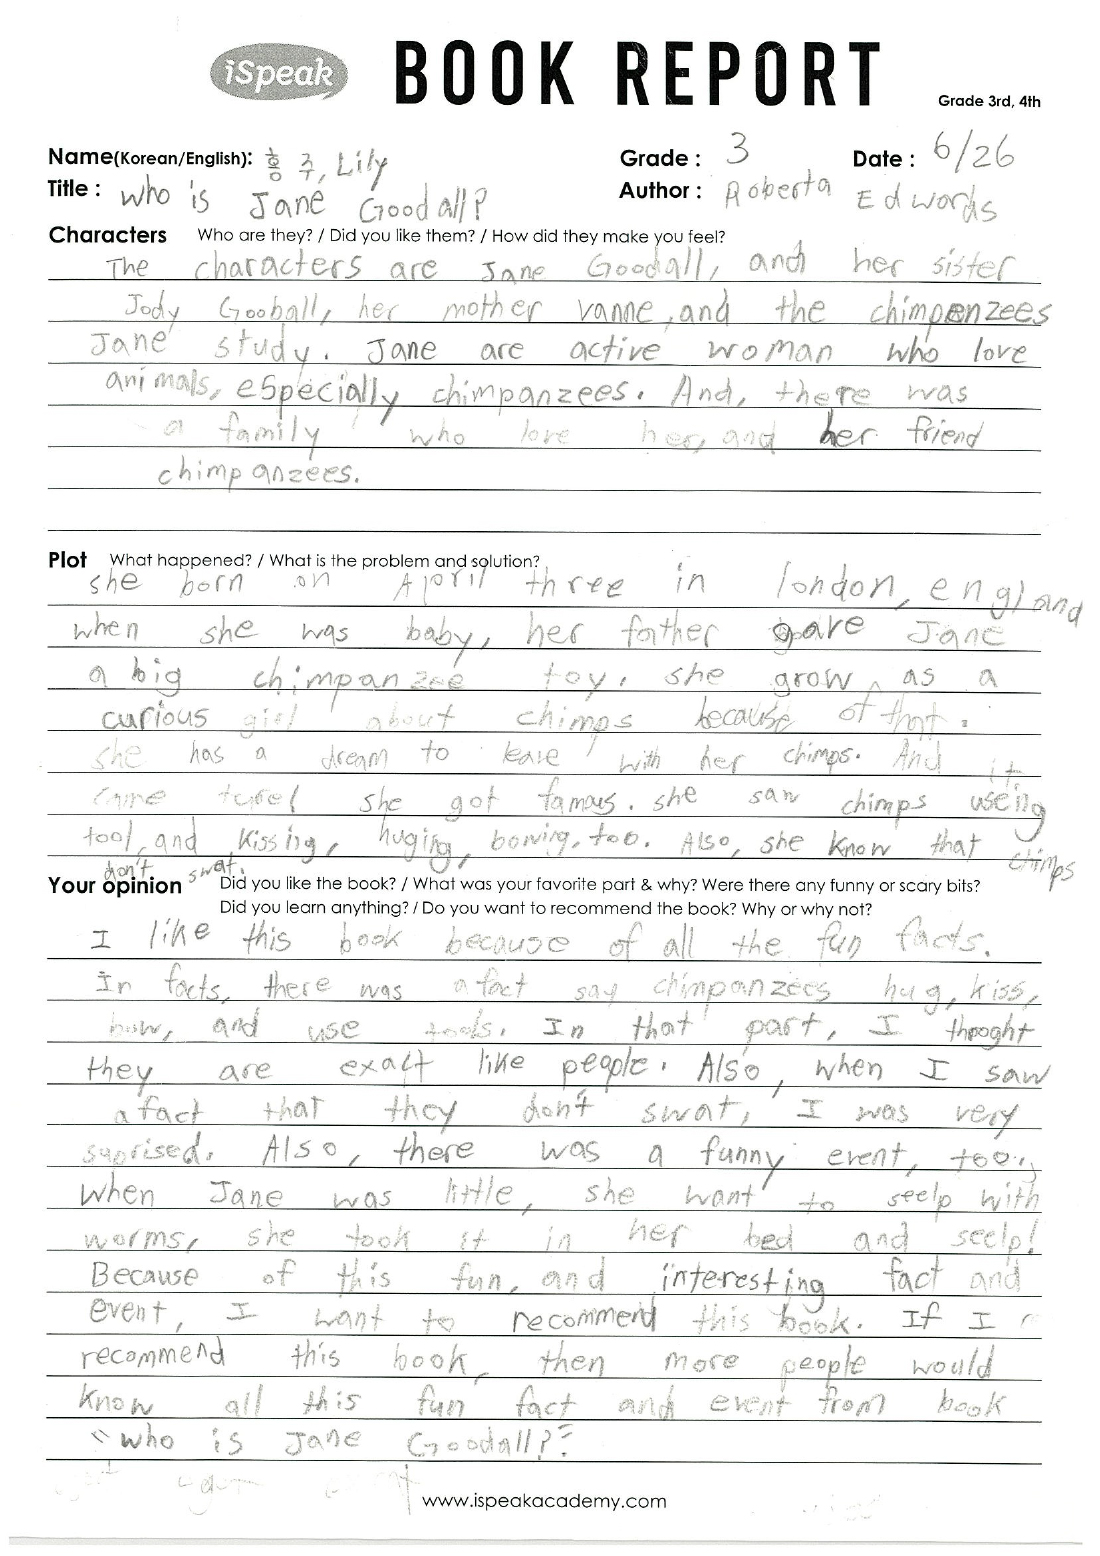 iSpeak BOOK REPORT Grade 3rd, 4th
Name(Korean/English): 홍주, Lily Grade : 3 Date : 6/26
Title : Who is Jane Goodall? Author : Roberta Edwards
Characters Who are they? / Did you like them? / How did they make you feel?
The characters are Jane Goodall, and her sister
Jody Gooball, her mother vanne, and the chimpenzees
Jane study. Jane are active woman who love
animals, especially chimpanzees. And, there was
a family who love her, and her friend
chimpanzees.
Plot What happened? / What is the problem and solution?
she born on April three in london, england
when she was baby, her father gave Jane
a big chimpanzee toy, she grow as a
curious girl about chimps because of that.
she has a dream to leave with her chimps. And it
came she got famous. she saw chimps useing
tool, and kissing, huging, bowing, too. Also, she know that chimps
don't swat.
Your opinion Did you like the book? / What was your favorite part & why? Were there any funny or scary bits?
Did you learn anything? / Do you want to recommend the book? Why or why not?
I like this book because of all the fun facts.
In facts, there was a fact say chimpanzees hug, kiss,
bow, and use tools. In that part, I thooght
they are exact like people. Also, when I saw
a fact that they don't swat, I was very
suprised. Also, there was a funny event, too,
when Jane was little, she want to seelp with
worms, she took it in her bed and seelp!
Because of this fun, and interesting fact and
event, I want to recommend this book. If I
recommend this book, then more people would
know all this fun fact and event from book
"who is Jane Goodall?"
www.ispeakacademy.com